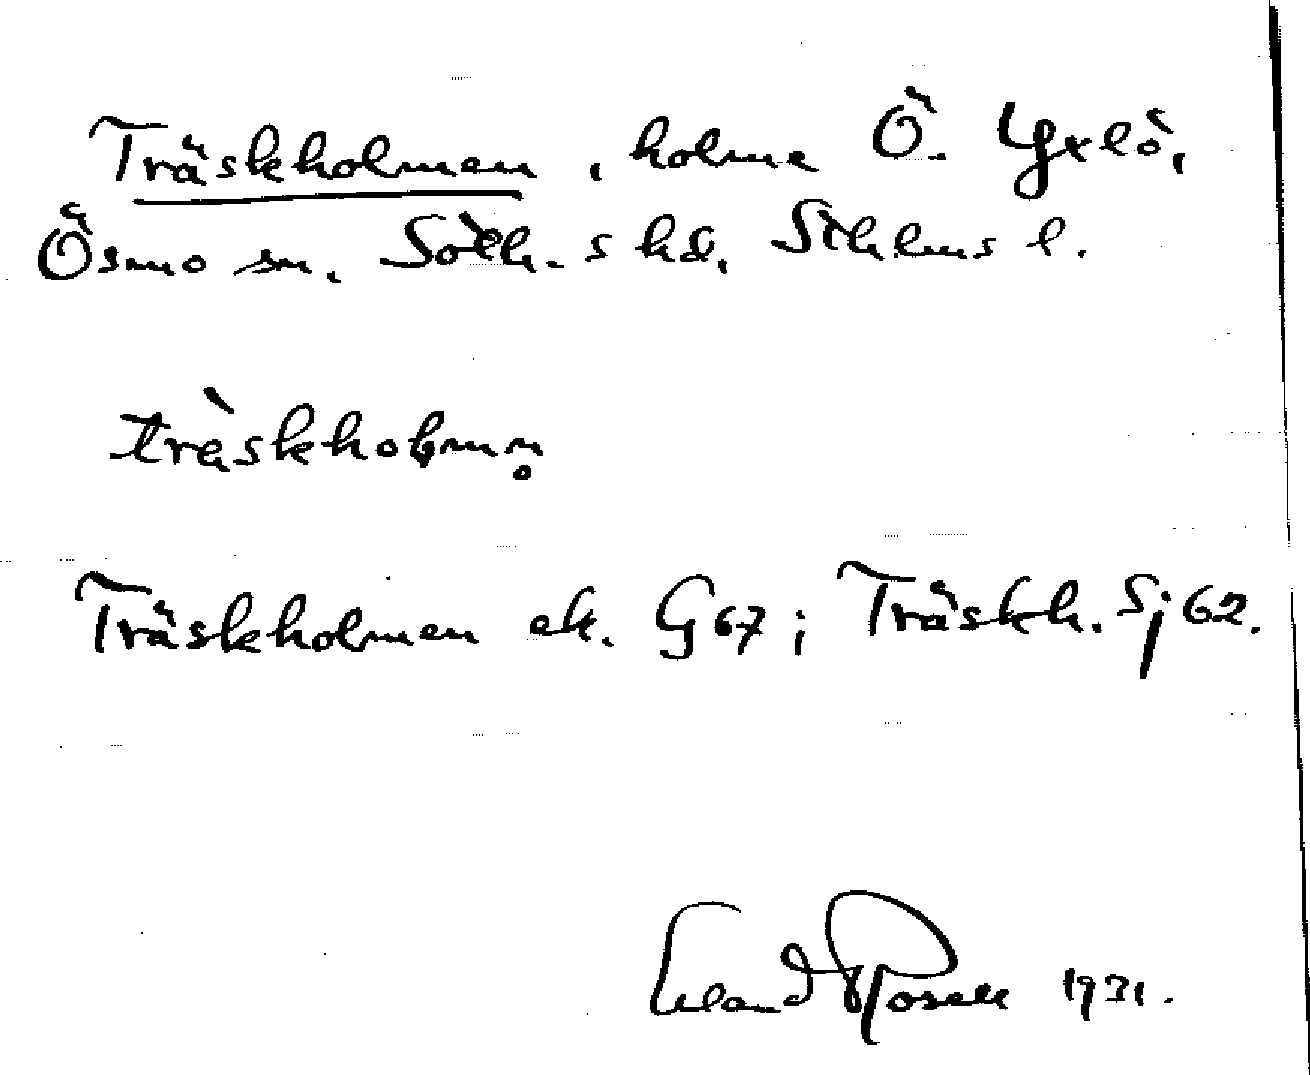 Träskholmen, holme Ö. Yxlö,
Ösmo sn. Soth. s hd. Sthlms l.
träskholmn̥
Träskholmen ek. G 67; Träskh. Sj 62.
Erland Rosell 1931.